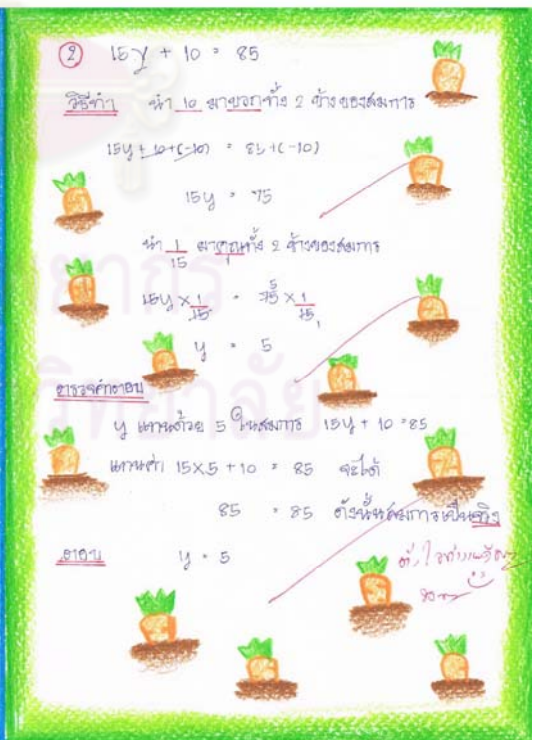 ② 15y + 10 = 85
วิธีทำ นำ 10 มาบวกทั้ง 2 ข้างของสมการ
15y + 10 + (-10) = 85 + (-10)
15y = 75
นำ 1/15 มาคูณทั้ง 2 ข้างของสมการ
15y × 1/15 = 75 × 1/15
y = 5
ตรวจคำตอบ
y แทนด้วย 5 ในสมการ 15y + 10 = 85
แทนค่า 15×5 + 10 = 85 จะได้
85 = 85 ดังนั้นสมการเป็นจริง
ตอบ y = 5